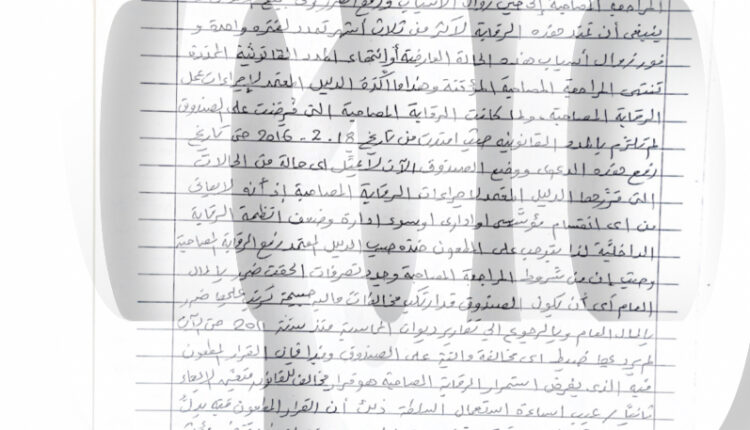 المراجعة المصاحبة إلى حين زوال الأسباب ورفع الضرر
ينبغي أن تمتد هذه الرقابة لأكثر من ثلاث أشهر تمدد لفترة واحدة و
فور زوال أسباب هذه الحالة العارضة أو إنتهاء المدد القانونية المحددة
تنتهي المراجعة المصاحبة المؤقتة وهذا ما أكدة الدليل المعتمد لإجراءات عمل
الرقابة المصاحبة. ولما كانت الرقابة المصاحبة التي فرضت على الصندوق
لم تلتزم بالمدد القانونية حيث امتدت من تاريخ 18 - 2 - 2016 حتى تاريخ
رفع هذه الدعوى ووضع الصندوق الآن لا يمثل اى حالة من الحالات
التي قررها الدليل المعتمد لإجراءات الرقابة المصاحبة إذ أنه لا يعاني
من اى انقسام مؤسسي او ادارى او سوء ادارة وضعف انظمة الرقابة
الداخلية لذا يتوجب على المطعون ضده حسب الدليل المعتمد رفع الرقابة المصاحبة
وحيث إن من شروط المراجعة المصاحبة وجود تصرفات الحقت ضرر بالمال
العام أى أن يكون الصندوق قد ارتكب مخالفات مالية جسيمة ترتب عليها ضرر
بالمال العام وبالرجوع إلى تقارير ديوان المحاسبة منذ سنة 2011 حتى الآن
لم يرد فيها ضبط اى مخالفة مالية على الصندوق وبذا فإن القرار المطعون
فيه الذى يفرض استمرار الرقابة المصاحبة هو قرار مخالف للقانون متعين الإلغاء
ثانياً / عيب اساءة استعمال السلطة ذلك أن القرار المطعون فيه يدل